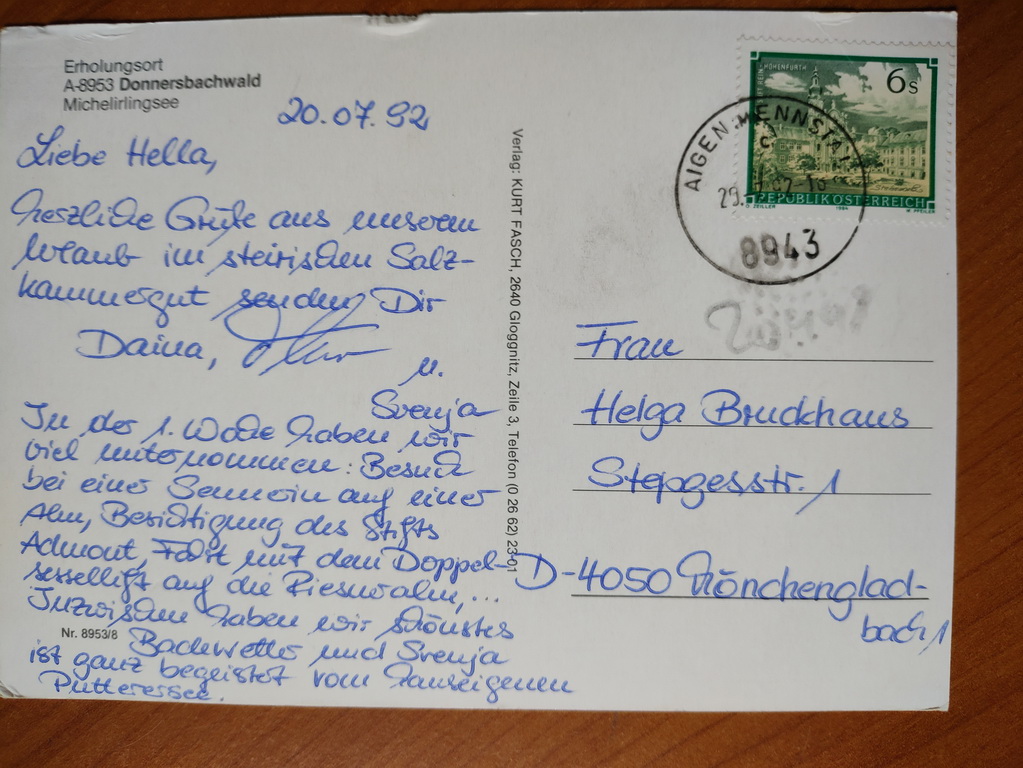 Erholungsort
A-8953 Donnersbachwald
Michelirlingsee
20.07.92
Liebe Hella,
herzliche Grüße aus unserem
Urlaub im steirischen Salz-
kammergut senden Dir
Daina,
u.
Svenja
In der 1. Woche haben wir
viel unternommen: Besuch
bei einer Sennerin auf einer
Alm, Besichtigung des Stifts
Admont, Fahrt mit dem Doppel-
sessellift auf die Riesneralm,...
Inzwischen haben wir schönstes
Badewetter und Svenja
ist ganz begeistert vom hauseigenen
Putterersee.
Nr. 8953/8
Verlag: KURT FASCH, 2640 Gloggnitz, Zeile 3, Telefon (0 26 62) 23-01
6s
STIFT REIN-HOHENFURTH
REPUBLIK ÖSTERREICH
O. ZEILLER 1984 W. PFEILER
AIGEN
8943
Frau
Helga Bruckhaus
Stepgesstr. 1
D-4050 Mönchenglad-
bach 1